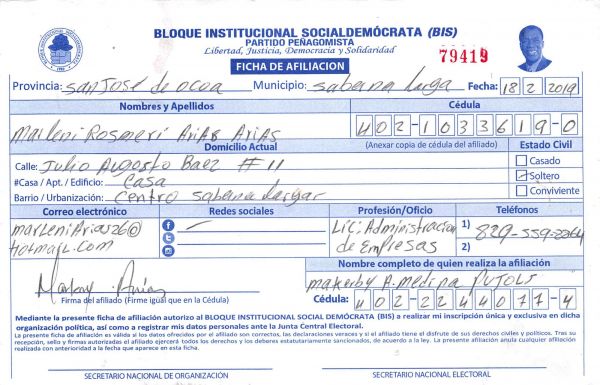 BLOQUE INSTITUCIONAL SOCIALDEMÓCRATA (BIS)
PARTIDO PEÑAGOMISTA
Libertad, Justicia, Democracia y Solidaridad
79419
FICHA DE AFILIACION
Provincia: San Jose de ocoa Municipio: Sabana Larga Fecha: 18 2 2019
Nombres y Apellidos Cédula
Marleni Rosmeri Arias Arias 402-1033619-0
Domicilio Actual (Anexar copia de cédula del afiliado) Estado Civil
Calle: Julio Augosto Baez # 11 Casado
#Casa / Apt. / Edificio: Casa Soltero
Barrio / Urbanización: Centro Sabana Largar Conviviente
Correo electrónico Redes sociales Profesión/Oficio Teléfonos
marleniArias26@ Lic. Administracion 1)
hotmail.com de Empresas 2) 829-559-8864
Nombre completo de quien realiza la afiliación
makerby A. medina Pujols
Arias
Firma del afiliado (Firme igual que en la Cédula) Cédula: 402-2244077-4
Mediante la presente ficha de afiliación autorizo al BLOQUE INSTITUCIONAL SOCIAL DEMÓCRATA (BIS) a realizar mi inscripción única y exclusiva en dicha
organización política, así como a registrar mis datos personales ante la Junta Central Electoral.
La presente ficha de afiliación es válida y los datos ofrecidos por el afiliado son correctos, las declaraciones veraces y si el afiliado tiene el disfrute de sus derechos civiles y políticos. Tras su
recepción, sello y firmas autorizadas el afiliado ejercerá todos los derechos y los deberes estatutariamente sancionados, de acuerdo a la ley. La presente afiliación anula cualquier afiliación
realizada con anterioridad a la fecha que aparece en esta ficha.
SECRETARIO NACIONAL DE ORGANIZACIÓN SECRETARIO NACIONAL ELECTORAL